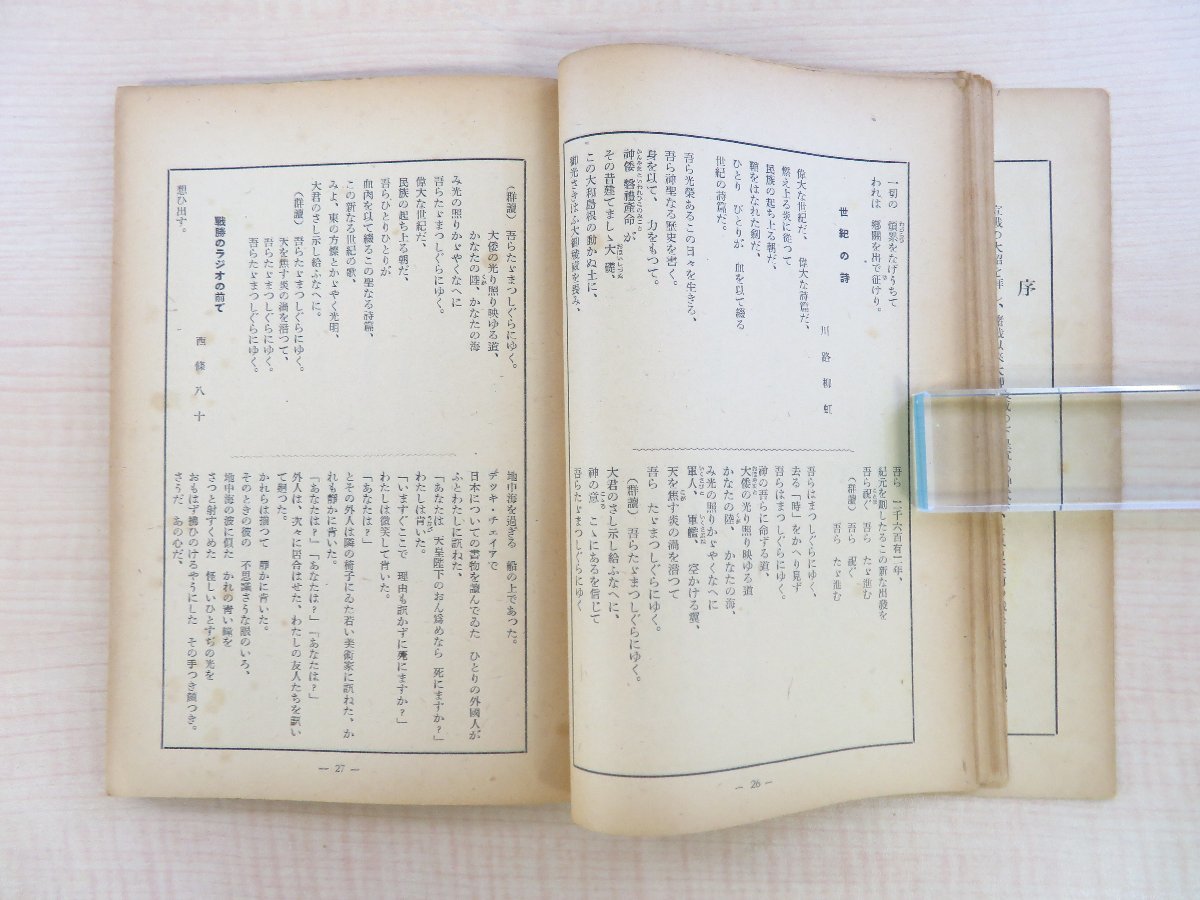 序
一切の　煩累をなげうちて
われは　郷關を出で征けり。
世紀の詩
川路柳虹
偉大な世紀だ、偉大な詩篇だ、
燃え上る炎に從つて
民族の起ち上る朝だ、
鞘をはなれた劍だ、
ひとり　びとりが　血を以て綴る
世紀の詩篇だ。
吾ら光榮あるこの日々を生きる、
吾ら神聖なる歷史を書く。
身を以て、　力をもつて。
神倭　磐禮產命が
その昔建てましゝ大　礎、
この大和島根の動かぬ土に、
吾ら　二千六百有二年、
紀元を劃したるこの新な出發を
吾ら祝ぐ　吾ら　たゞ進む
（群讀）　吾ら　祝ぐ
吾ら　たゞ進む
吾らはまつしぐらにゆく、
去る「時」をかへり見ず
吾らはまつしぐらにゆく。
神の吾らに命ずる道、
大倭の光り照り映ゆる道
かなたの陸、　かなたの海、
み光の照りかゞやくなへに
軍人、　軍艦、　空かける翼、
天を焦す炎の渦を潜つて
吾ら　たゞまつしぐらにゆく。
（群讀）　吾らたゞまつしぐらにゆく。
大君のさし示し給ふなへに、
神の意　こゝにあるを信じて
吾らたゞまつしぐらにゆく
— 26 —
（群讀）　吾らたゞまつしぐらにゆく。
大倭の光り照り映ゆる道、
かなたの陸、かなたの海
み光の照りかゞやくなへに
吾らたゞまつしぐらにゆく。
偉大な世紀だ、
民族の起ち上る朝だ、
吾らひとりひとりが
血肉を以て綴るこの聖なる詩篇、
この新なる世紀の歌、
みよ、東の方燦とかゞやく光明、
大君のさし示し給ふなへに。
（群讀）　吾らたゞまつしぐらにゆく。
天を焦す炎の渦を潜つて、
吾らたゞまつしぐらにゆく。
吾らたゞまつしぐらにゆく。
戰勝のラジオの前で
西條八十
想ひ出す。
地中海を過ぎる　船の上であつた。
デツキ・チェイアで
日本についての書物を讀んでゐた　ひとりの外國人が
ふとわたしに訊ねた、
「あなたは　天皇陛下のおん爲めなら　死にますか？」
わたしは肯いた。
「いますぐここで　理由も訊かずに死にますか？」
わたしは微笑して肯いた。
「あなたは？」
とその外人は隣の椅子にゐた若い美術家に訊ねた、か
れも靜かに肯いた。
「あなたは？」「あなたは？」「あなたは？」
外人は、次々に居合はせた、わたしの友人たちを訊い
て廻つた。
かれらは揃つて　靜かに肯いた。
そのときの彼の　不思議さうな眼のいろ、
地中海の波に似た　かれの靑い瞳を
さつと射すくめた　怪しいひとすぢの光を
おもはず拂ひのけるやうにした　その手つき顏つき。
さうだ　あの心だ、
— 27 —